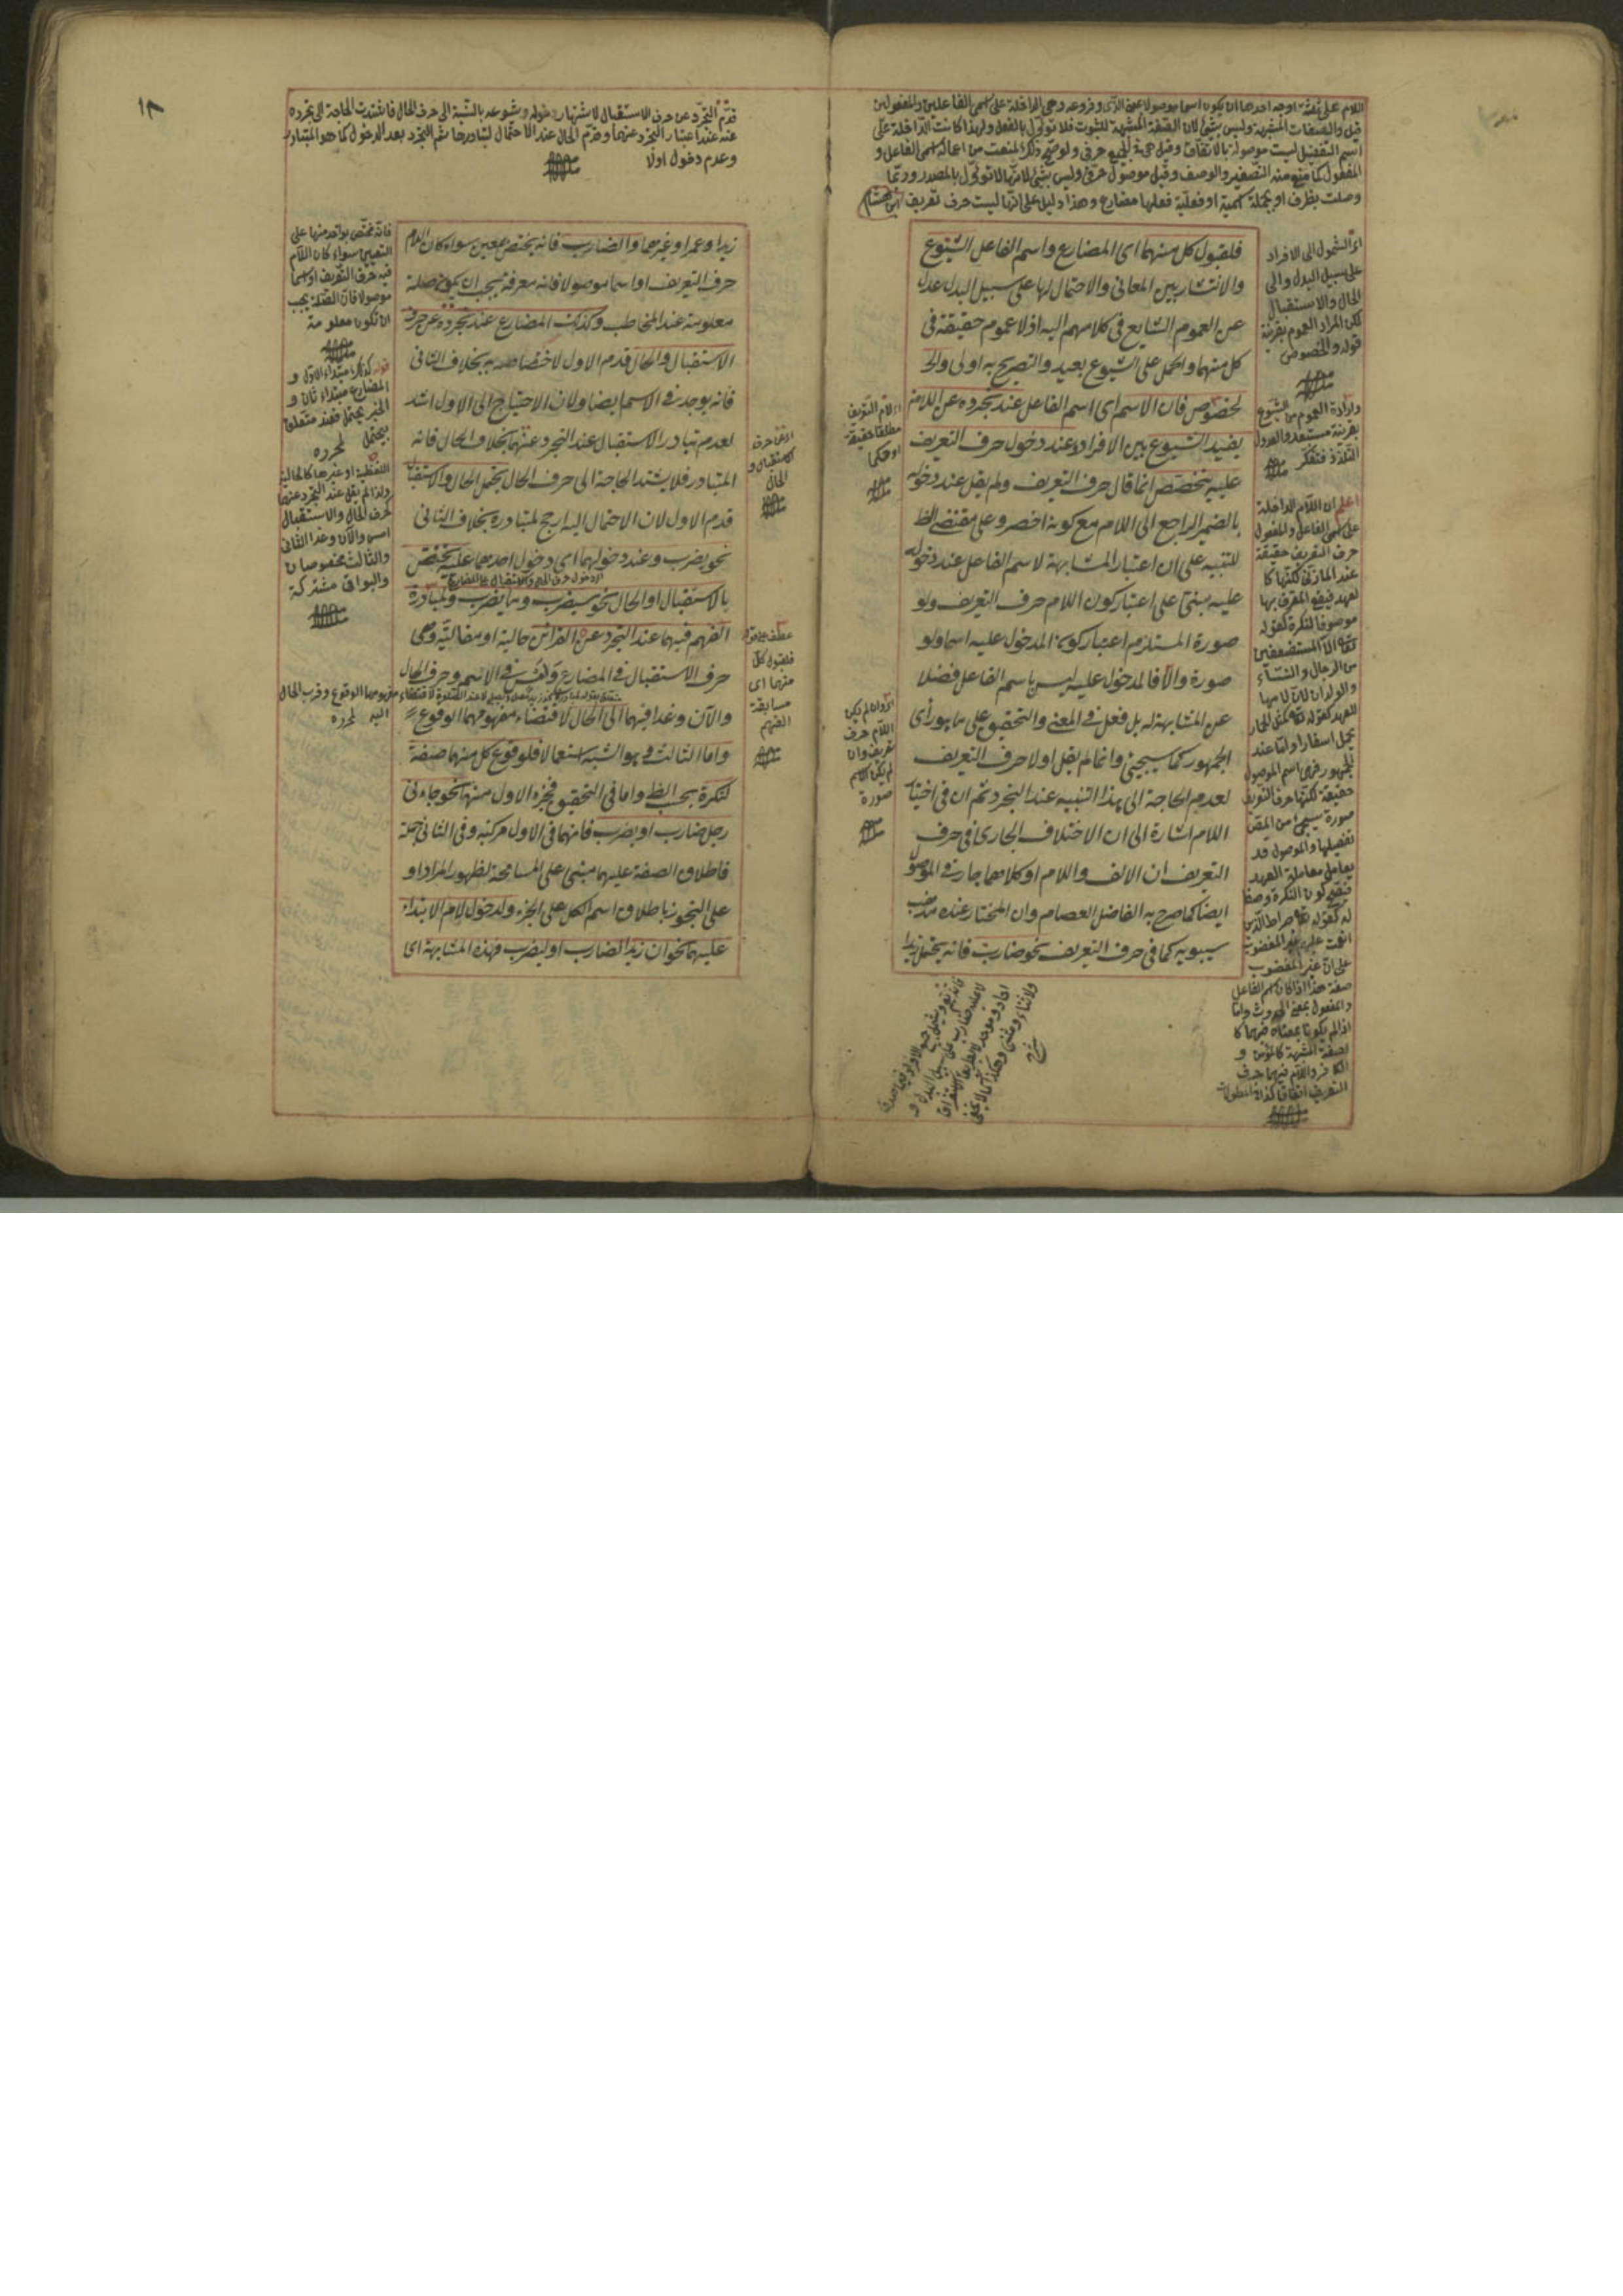 اللام على ثلثة اوجه احدها ان يكون اسما موصولا بمعنى الذى وفروعه وهى الداخلة على اسمى الفاعلين والمفعولين
قيل والصفات المشبهة وليس بشئ لان الصفة المشبهة للثبوت فلا تؤول بالفعل ولهذا كانت الداخلة على
اسم التفضيل ليست موصولة بالاتفاق وقيل هى فى الجميع حرف ولو صح ذلك لمنعت من اعمال اسمى الفاعل و
المفعول كما منع منه التصغير والوصف وقيل موصول حرفى وليس بشئ لانها لا تؤول بالمصدر وربما
وصلت بظرف او بجملة اسمية او فعلية فعلها مضارع وهذا دليل على انها ليست حرف تعريف ابن هشام
فلقبول كل منهما اى المضارع واسم الفاعل الشيوع
والانتشار بين المعانى والاحتمال لها على سبيل البدل عدل
عن العموم الشايع فى كلامهم اليه اذ لا عموم حقيقة فى
كل منهما والحمل على الشيوع بعيد والتصريح به اولى والخ
لخصوص فان الاسم اى اسم الفاعل عند تجرده عن اللام
يفيد الشيوع بين الافراد وعند دخول حرف التعريف
عليه يتخصص انما قال حرف التعريف ولم يقل عند دخوله
بالضمير الراجع الى اللام مع كونه اخصر وعلى مقتضى الظ
للتنبيه على ان اعتبار المشابهة لاسم الفاعل عند دخوله
عليه مبنى على اعتبار كون اللام حرف التعريف ولو
صورة المستلزم اعتبار كون المدخول عليه اسما ولو
صورة والا فالمدخول عليه ليس باسم الفاعل فضلا
عن المشابهة له بل فعل فى المعنى والتحقيق على ما هو رأى
الجمهور كما سيجئ وانما لم يقل اولا حرف التعريف
لعدم الحاجة الى هذا التنبيه عند التجرد ثم ان فى اختيار
اللام اشارة الى ان الاختلاف الجارى فى حرف
التعريف ان الالف واللام او كلاهما جار فى الموصول
ايضا كما صرح به الفاضل العصام وان المختار عنده مذهب
سيبويه كما فى حرف التعريف نحو ضارب فانه يحتمل زيدا
اى الشمول الى الافراد
على سبيل البدل والى
الحال والاستقبال
لكن المراد العموم بقرينة
قوله والخصوص
وارادة العموم من الشيوع
بقرينة مستبعد والعدول
اعلم ان اللام الداخلة
على اسمى الفاعل والمفعول
حرف التعريف حقيقة
عند المازنى لكنها كا
لعهد فيقع المعرف بها
موصوفا للنكرة كقوله
تعالى الا المستضعفين
من الرجال والنساء
والولدان
يحمل اسفارا واما عند
الجمهور فهى اسم الموصول
حقيقة لكنها حرف التعريف
صورة سيجئ من المص
تفصيلها والموصول قد
يعامل معاملة العهد
فيصح كون النكرة وصفا
له كقوله تعالى صراط الذين
انعمت عليهم غير المغضوب
على ان غير المغضوب
صفة هذا اذا كان اسم الفاعل
والمفعول بمعنى الحدوث واما
اذا لم يكونا بمعناه فهما كا
لصفة المشبهة كالمؤمن و
الكافر واللام فيهما حرف
التعريف اتفاقا كذا فى المطولات
اى لام التعريف
مطلقا حقيقة
او حكما
اى وان لم يكن
اللام حرف
تعريف وان
لم يكن الاسم
صورة
١٨
قدم التجرد عن حرف الاستقبال لاشتهار دخوله وشيوعه بالنسبة الى حرف الحال فاشتدت الحاجة الى تجرده
عنه عند اعتبار التجرد عنهما وقدم الحال عند الاحتمال لتبادرها ثم التجرد بعد الدخول كما هو المتبادر
وعدم دخول اولا
زيدا وعمرا وغيرهما والضارب فانه يختص بمعين سواء كان اللام
حرف التعريف او اسما موصولا فانه معرفة فيجب ان يكون صلة
معلومة عند المخاطب وكذلك المضارع عند تجرده عن حرف
الاستقبال والحال قدم الاول لاختصاصه به بخلاف الثانى
فانه يوجد فى الاسم ايضا ولان الاحتياج الى الاول اشد
لعدم تبادر الاستقبال عند التجرد عنهما بخلاف الحال فانه
المتبادر فلا يشتد الحاجة الى حرف الحال يحتمل الحال والاستقبال
قدم الاول لان الاحتمال اليه ارجح لتبادره بخلاف الثانى
نحو يضرب وعند دخولهما اى دخول احدهما عليه يختص
بالاستقبال او الحال نحو سيضرب وما يضرب ولمبادرة
الفهم فيهما عند التجرد عن القرائن حالية او مقالية وهى
حرف الاستقبال فى المضارع وامس فى الاسم وحرف الحال
والآن وغدا فيهما الى الحال لاقتضاء مفهومهما الوقوع
واما الثالث فهو الشبه استعمالا فلوقوع كل منهما صفة
لنكرة بحسب الظ واما فى التحقيق فجزء الاول منهما نحو جاءنى
رجل ضارب او يضرب فانهما فى الاول مركبة وفى الثانى جملة
فاطلاق الصفة عليهما مبنى على المسامحة لظهور المراد او
على التجوز باطلاق اسم الكل على الجزء ولدخول لام الابتداء
عليهما نحو ان زيدا لضارب او ليضرب فهذه المشابهة اى
اى عن حرف
الاستقبال و
الحال
عطف على قوله
فلقبول كل
منهما اى
مسابقة
الفهم
فانه يختص بواحد منها على
التعيين سواء كان اللام
فيه حرف التعريف او اسما
موصولا فان الصلة يجب
ان تكون معلومة
قوله كذلك مبتداء الاول و
المضارع مبتداء ثان و
الخبر يحتمل فعند متعلق
بيحتمل لمحرره
اللفظية او غيرها كالحالية
ولذا لم يقل عند التجرد عنهما
لحرف الحال والاستقبال
امس والآن وغدا الثانى
والثالث مخصوصان
والبواقى مشتركة
مفهومهما الوقوع وقرب الحال
اليه لمحرره